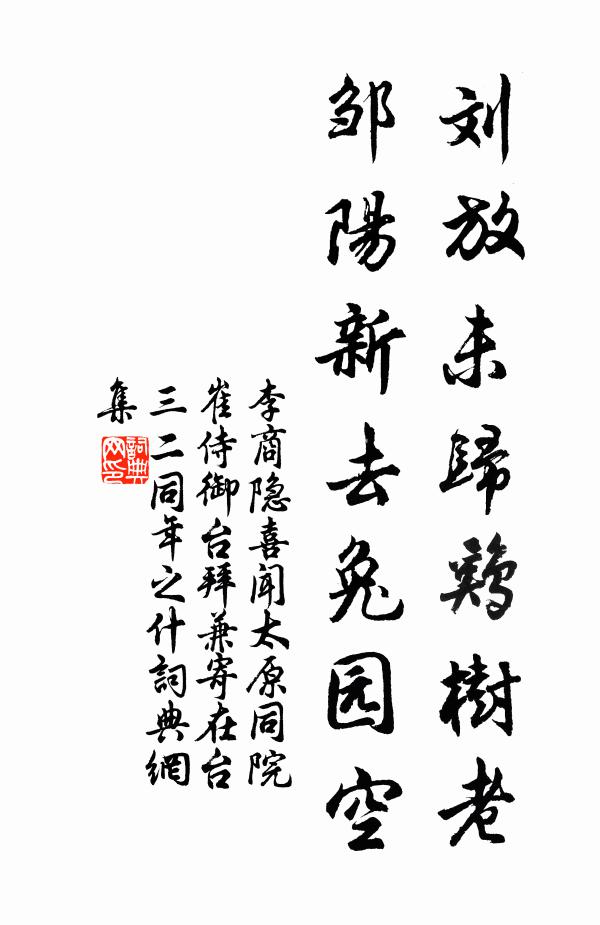 刘放未歸鷄樹老
邹陽新去兔园空
李商隐喜闻太原同院
崔侍御台拜兼寄在台
三二同年之什詞典網
集
詞典
网印